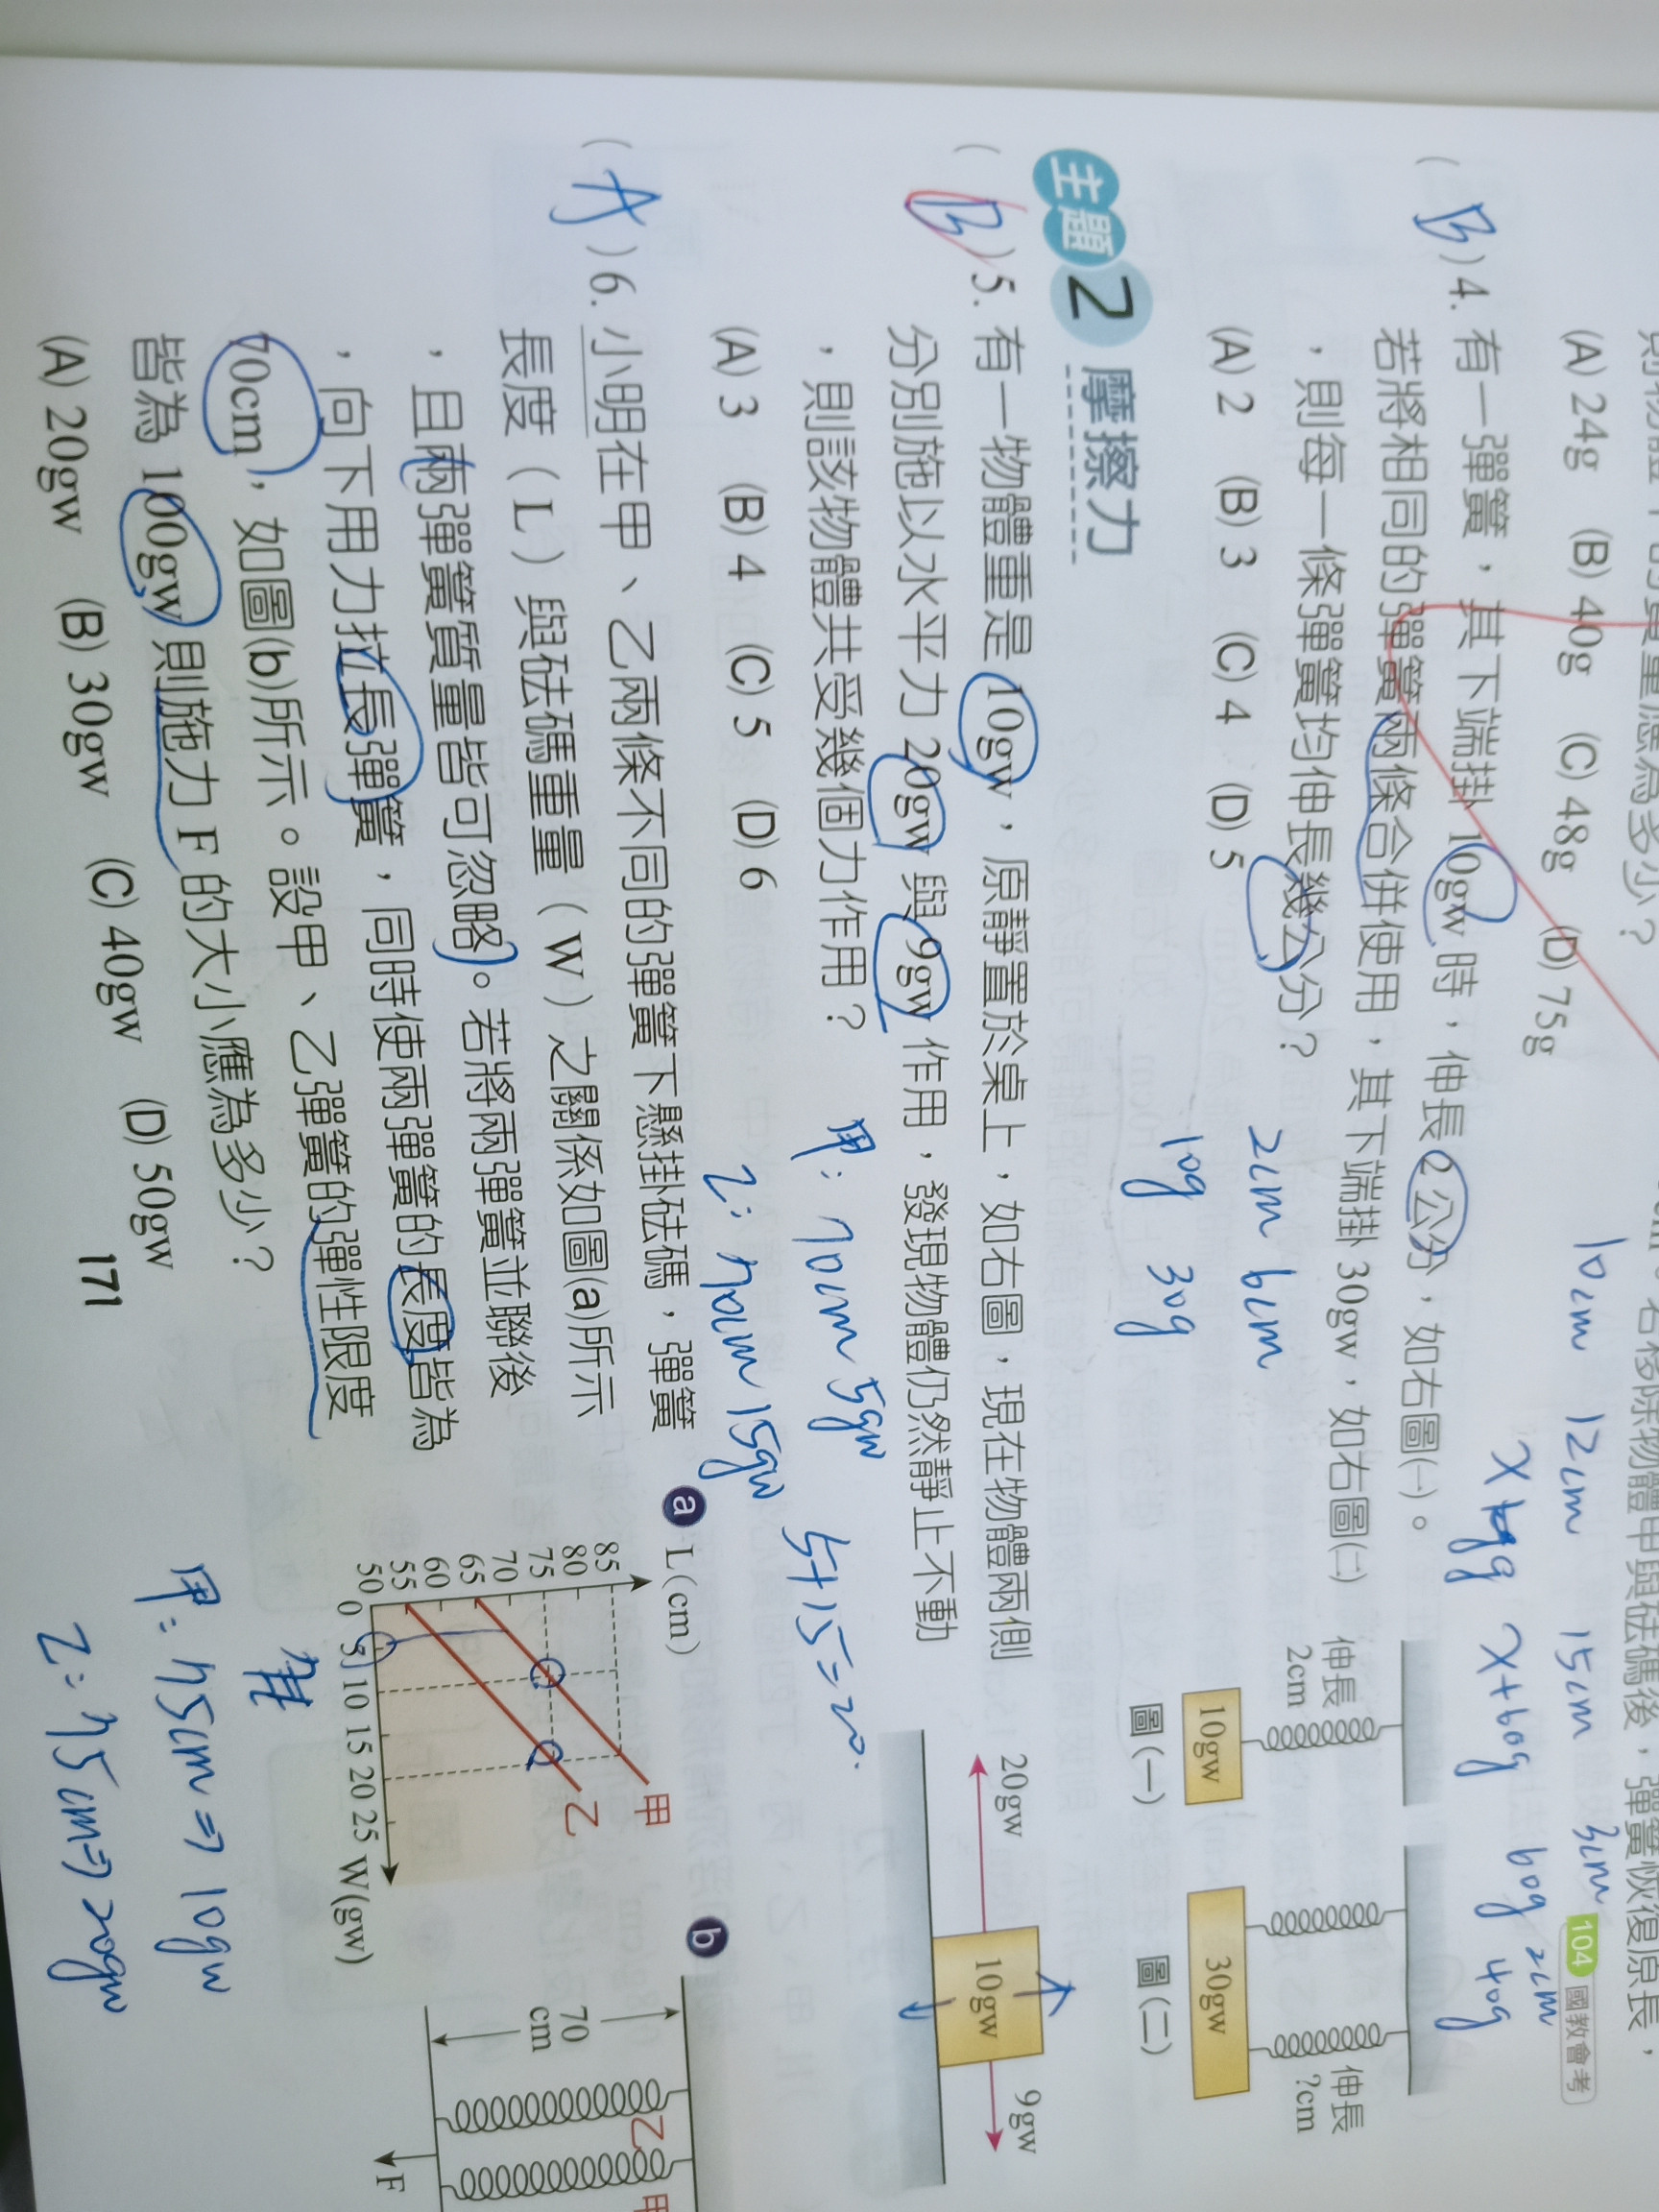 則物體甲的質量應為多少？
(A) 24g (B) 40g (C) 48g (D) 75g
104 國教會考
10cm 12cm 15cm 3cm
x x+60g 60g 2cm
40g
(B) 4. 有一彈簧，其下端掛 10gw 時，伸長 2 公分，如右圖(一)。
若將相同的彈簧兩條合併使用，其下端掛 30gw，如右圖(二)
，則每一條彈簧均伸長幾公分？
(A) 2 (B) 3 (C) 4 (D) 5
2cm 6cm
10g 30g
伸長
2cm
10gw
圖(一)
30gw
伸長
?cm
圖(二)
主題 2 摩擦力
(B) 5. 有一物體重是 10gw，原靜置於桌上，如右圖，現在物體兩側
分別施以水平力 20gw 與 9gw 作用，發現物體仍然靜止不動
，則該物體共受幾個力作用？
(A) 3 (B) 4 (C) 5 (D) 6
20gw
10gw
9gw
甲: 70cm 5gw
乙: 70cm 15gw
5+15=20.
(A) 6. 小明在甲、乙兩條不同的彈簧下懸掛砝碼，彈簧
長度（L）與砝碼重量（W）之關係如圖(a)所示
，且兩彈簧質量皆可忽略。若將兩彈簧並聯後
，向下用力拉長彈簧，同時使兩彈簧的長度皆為
70cm，如圖(b)所示。設甲、乙彈簧的彈性限度
皆為 100gw 則施力 F 的大小應為多少？
(A) 20gw (B) 30gw (C) 40gw (D) 50gw
a L(cm)
85
80
75
70
65
60
55
50
0 5 10 15 20 25 W(gw)
甲
乙
b
70
cm
乙
甲
F
甲: 75cm ⇒ 10gw
乙: 75cm ⇒ 20gw
171